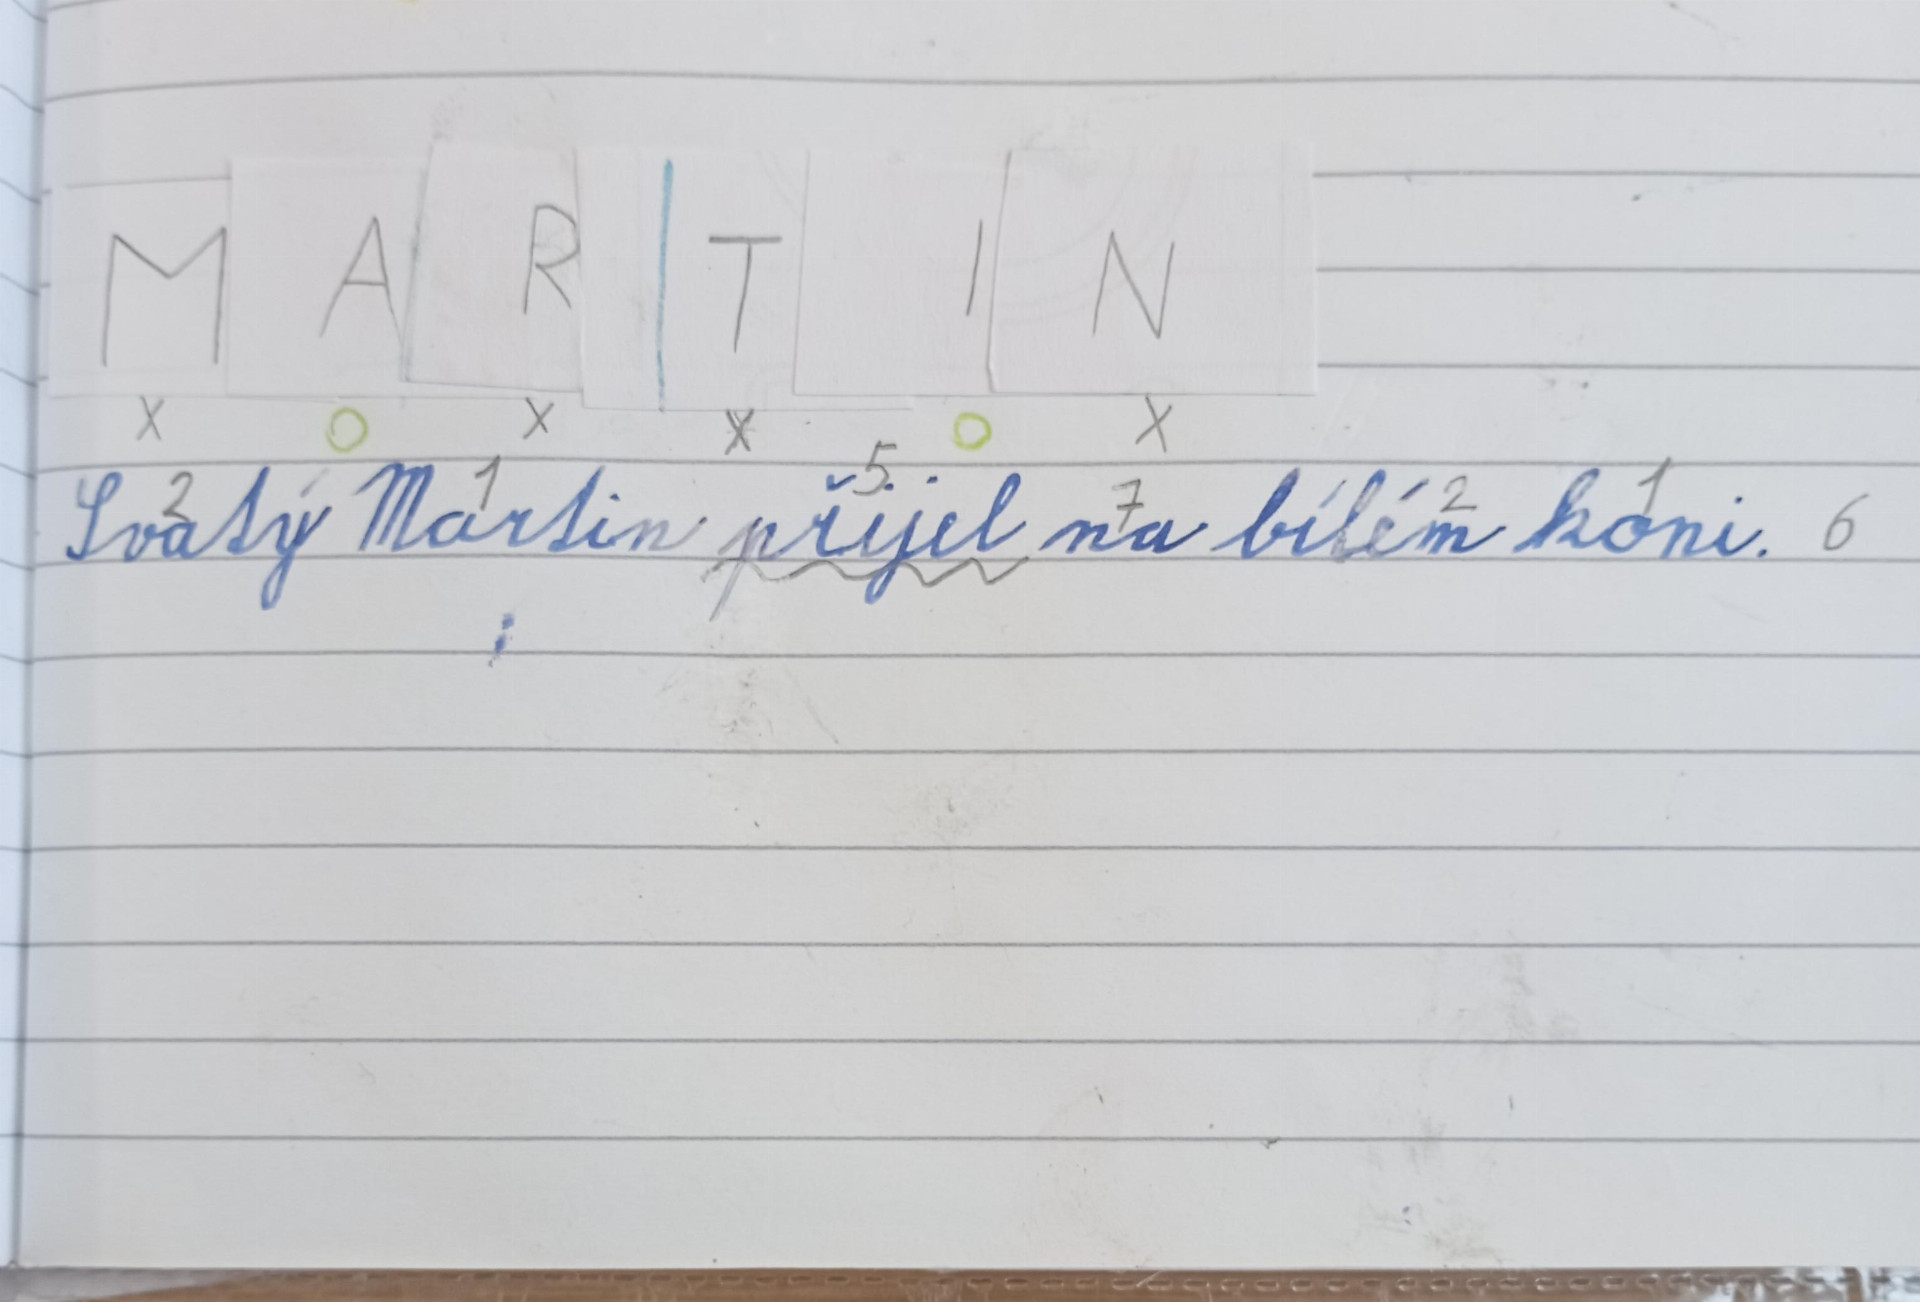 MAR|TIN
x o x x o x
2 1 5. 7 2 1
Svatý Martin přijel na bílém koni. 6